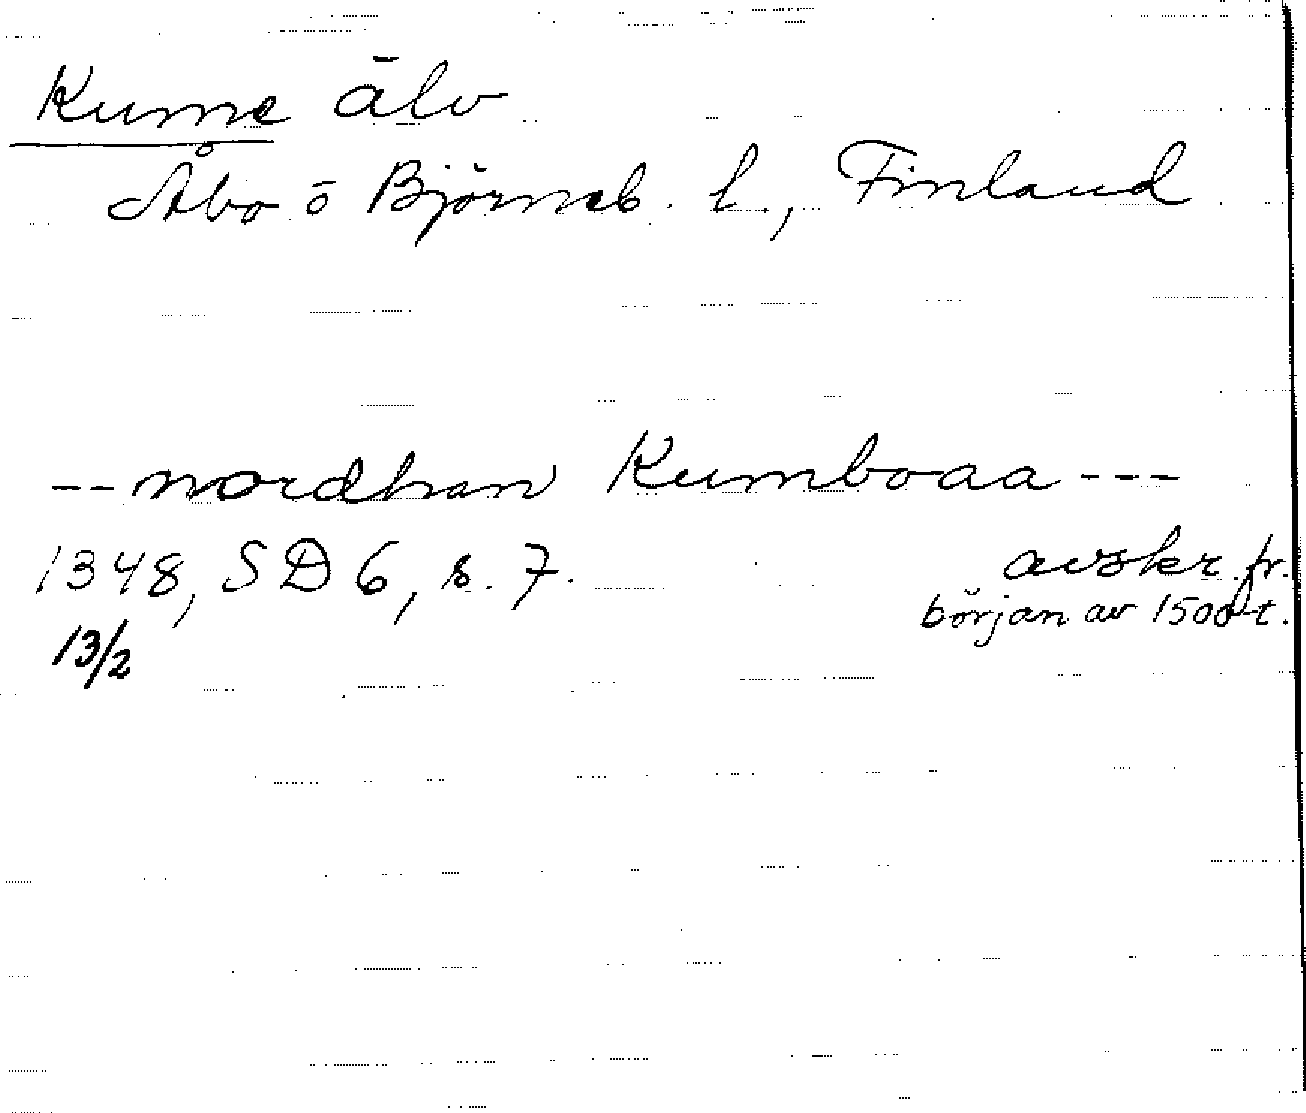 Kumo älv
Åbo o Björneb. l., Finland
-- nordhan Kumboaa ---
1348, SD 6, s. 7. avskr. fr.
13/2 början av 1500-t.